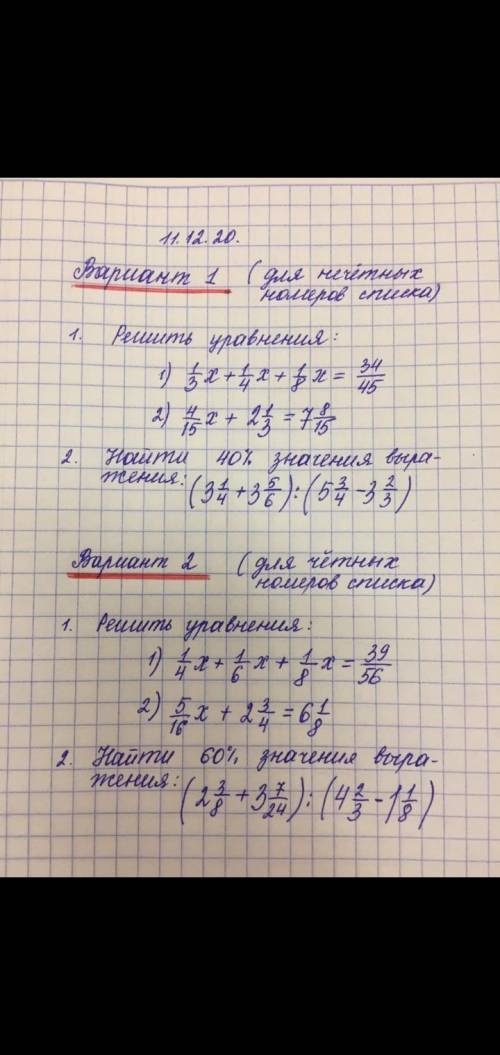 11.12.20.
Вариант 1 (для нечётных
номеров списка)
1. Решить уравнения:
1) 1/3 x + 1/4 x + 1/8 x = 34/45
2) 4/15 x + 2 1/3 = 7 8/15
2. Найти 40% значения выра-
жения: (3 1/4 + 3 5/6) : (5 3/4 - 3 2/3)
Вариант 2 (для чётных
номеров списка)
1. Решить уравнения:
1) 1/4 x + 1/6 x + 1/8 x = 39/56
2) 5/16 x + 2 3/4 = 6 1/8
2. Найти 60% значения выра-
жения: (2 3/8 + 3 7/24) : (4 2/3 - 1 1/8)